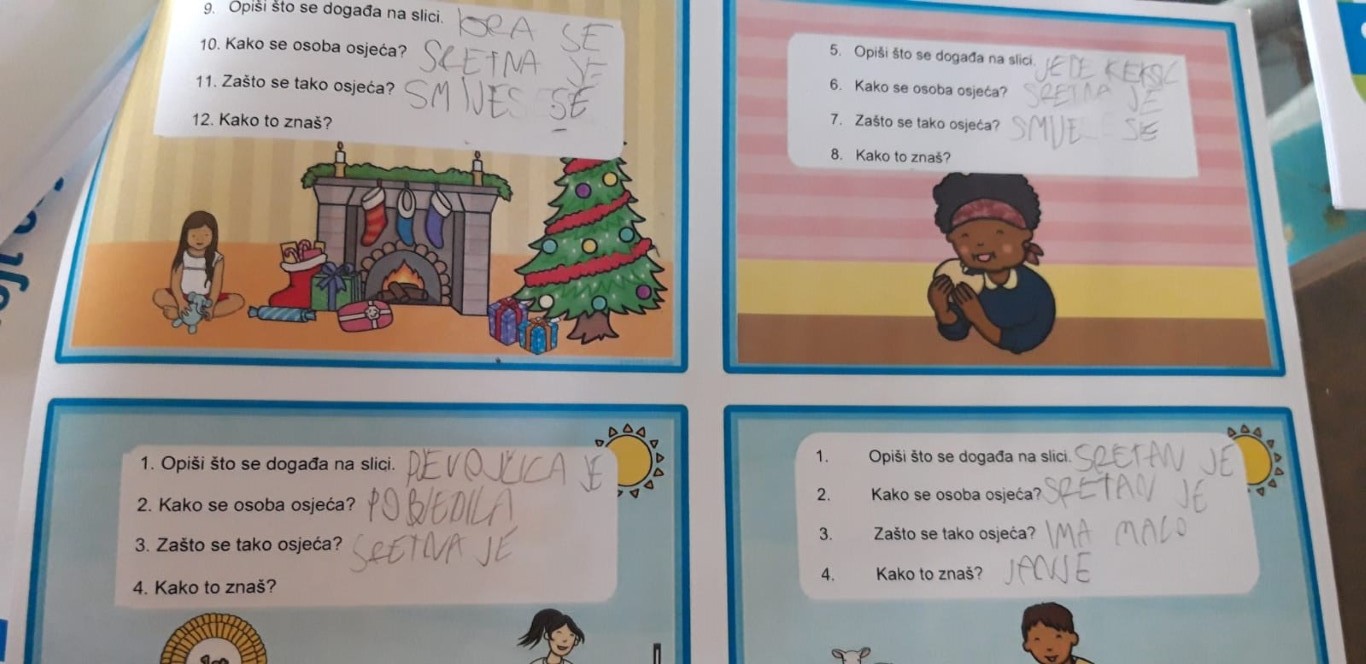 9. Opiši što se događa na slici. IGRA SE
10. Kako se osoba osjeća? SRETNA JE
11. Zašto se tako osjeća? SMIJES SE
12. Kako to znaš?
5. Opiši što se događa na slici. JEDE KEKSE
6. Kako se osoba osjeća? SRETNA JE
7. Zašto se tako osjeća? SMIJE SE
8. Kako to znaš?
1. Opiši što se događa na slici. DEVOJČICA JE
2. Kako se osoba osjeća? POBJEDILA
3. Zašto se tako osjeća? SRETNA JE
4. Kako to znaš?
1. Opiši što se događa na slici. SRETAN JE
2. Kako se osoba osjeća? SRETAN JE
3. Zašto se tako osjeća? IMA MALO
4. Kako to znaš? JANJE